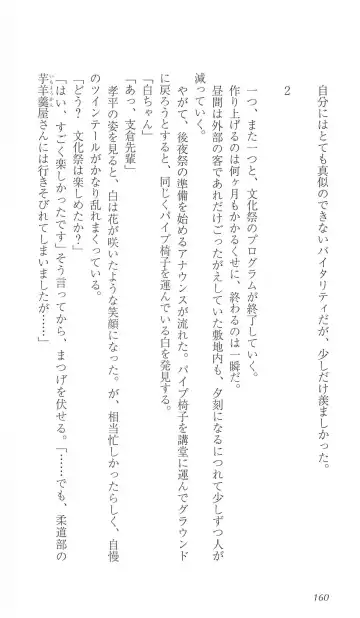 自分にはとても真似のできないバイタリティだが、少しだけ羨ましかった。
2
一つ、また一つと、文化祭のプログラムが終了していく。
作り上げるのは何ヶ月もかかるくせに、終わるのは一瞬だ。
昼間は外部の客であれだけごったがえしていた敷地内も、夕刻になるにつれて少しずつ人が
減っていく。
やがて、後夜祭の準備を始めるアナウンスが流れた。パイプ椅子を講堂に運んでグラウンド
に戻ろうとすると、同じくパイプ椅子を運んでいる白を発見する。
「白ちゃん」
「あっ、支倉先輩」
孝平の姿を見ると、白は花が咲いたような笑顔になった。が、相当忙しかったらしく、自慢
のツインテールがかなり乱れまくっている。
「どう？　文化祭は楽しめたか？」
「はい、すごく楽しかったです」そう言ってから、まつげを伏せる。「……でも、柔道部の
芋羊羹屋さんには行きそびれてしまいましたが……」
いもようかん
160